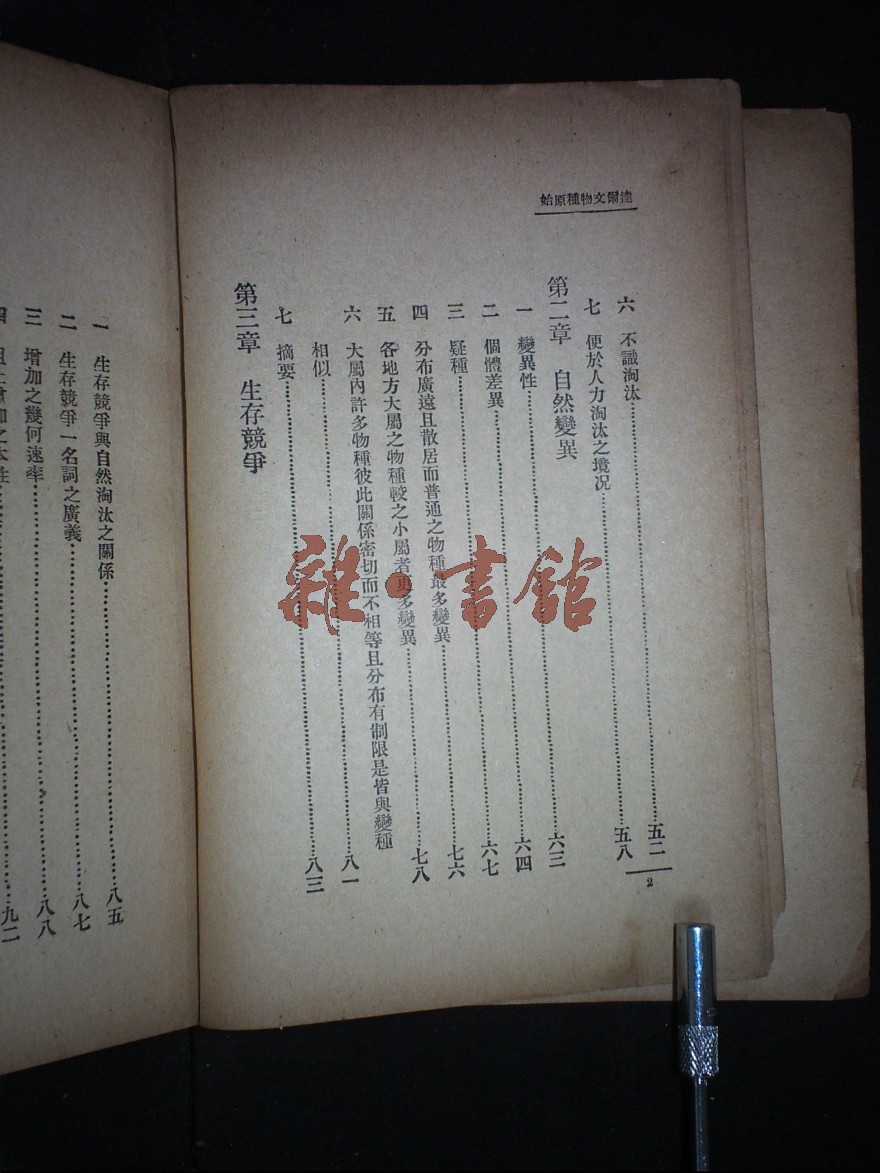 達爾文物種原始
六 不識淘汰……五二
七 便於人力淘汰之境況……五八
第二章 自然變異
一 變異性……六三
二 個體差異……六四
三 疑種……六七
四 分布廣遠且散居而普通之物種最多變異……七六
五 各地方大屬之物種較之小屬者更多變異……七八
六 大屬內許多物種彼此關係密切而不相等且分布有制限是皆與變種
相似……八一
七 摘要……八三
第三章 生存競爭
2
一 生存競爭與自然淘汰之關係……八五
二 生存競爭一名詞之廣義……八七
三 增加之幾何速率……八八
四 阻止增加之本性……九二
雜·書館